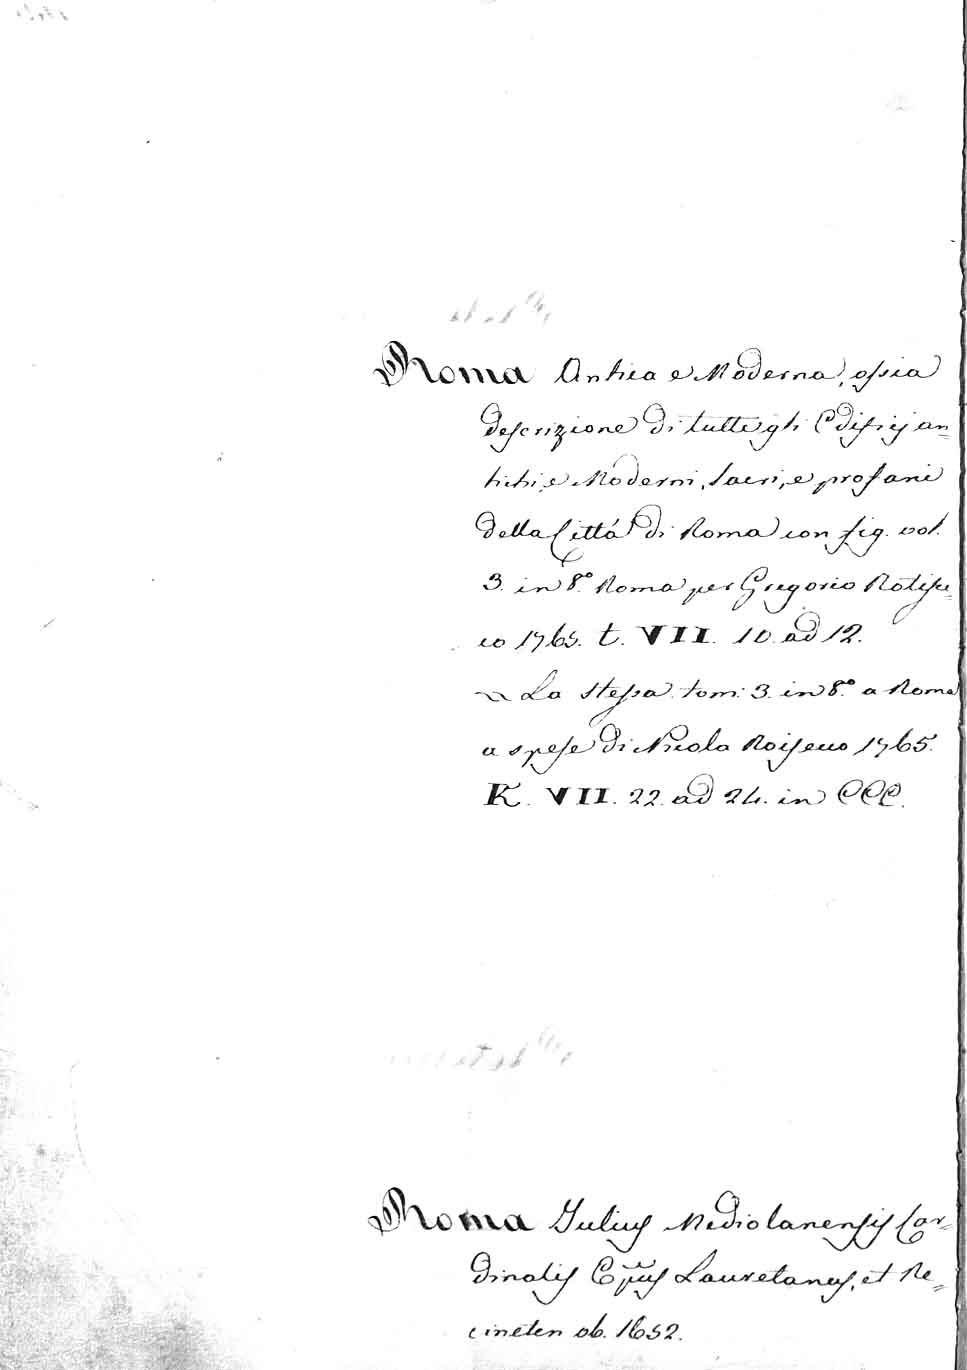 Roma Antica e Moderna, ossia
descrizione di tutte gli Edifizj an=
tichi, e Moderni, sacri, e profani
della Cittá di Roma con fig. vol.
3. in 8.º Roma per Gregorio Rotise=
co 1765. t. VII. 10. ad 12.
~ La stessa. tom: 3. in 8.º a Roma
a spese di Nicola Roisecco 1765.
K. VII. 22. ad 24. in CCC.
Roma Julius Mediolanensis Car=
dinalis Epũs Lauretanus, et Re=
cineten ob. 1652.